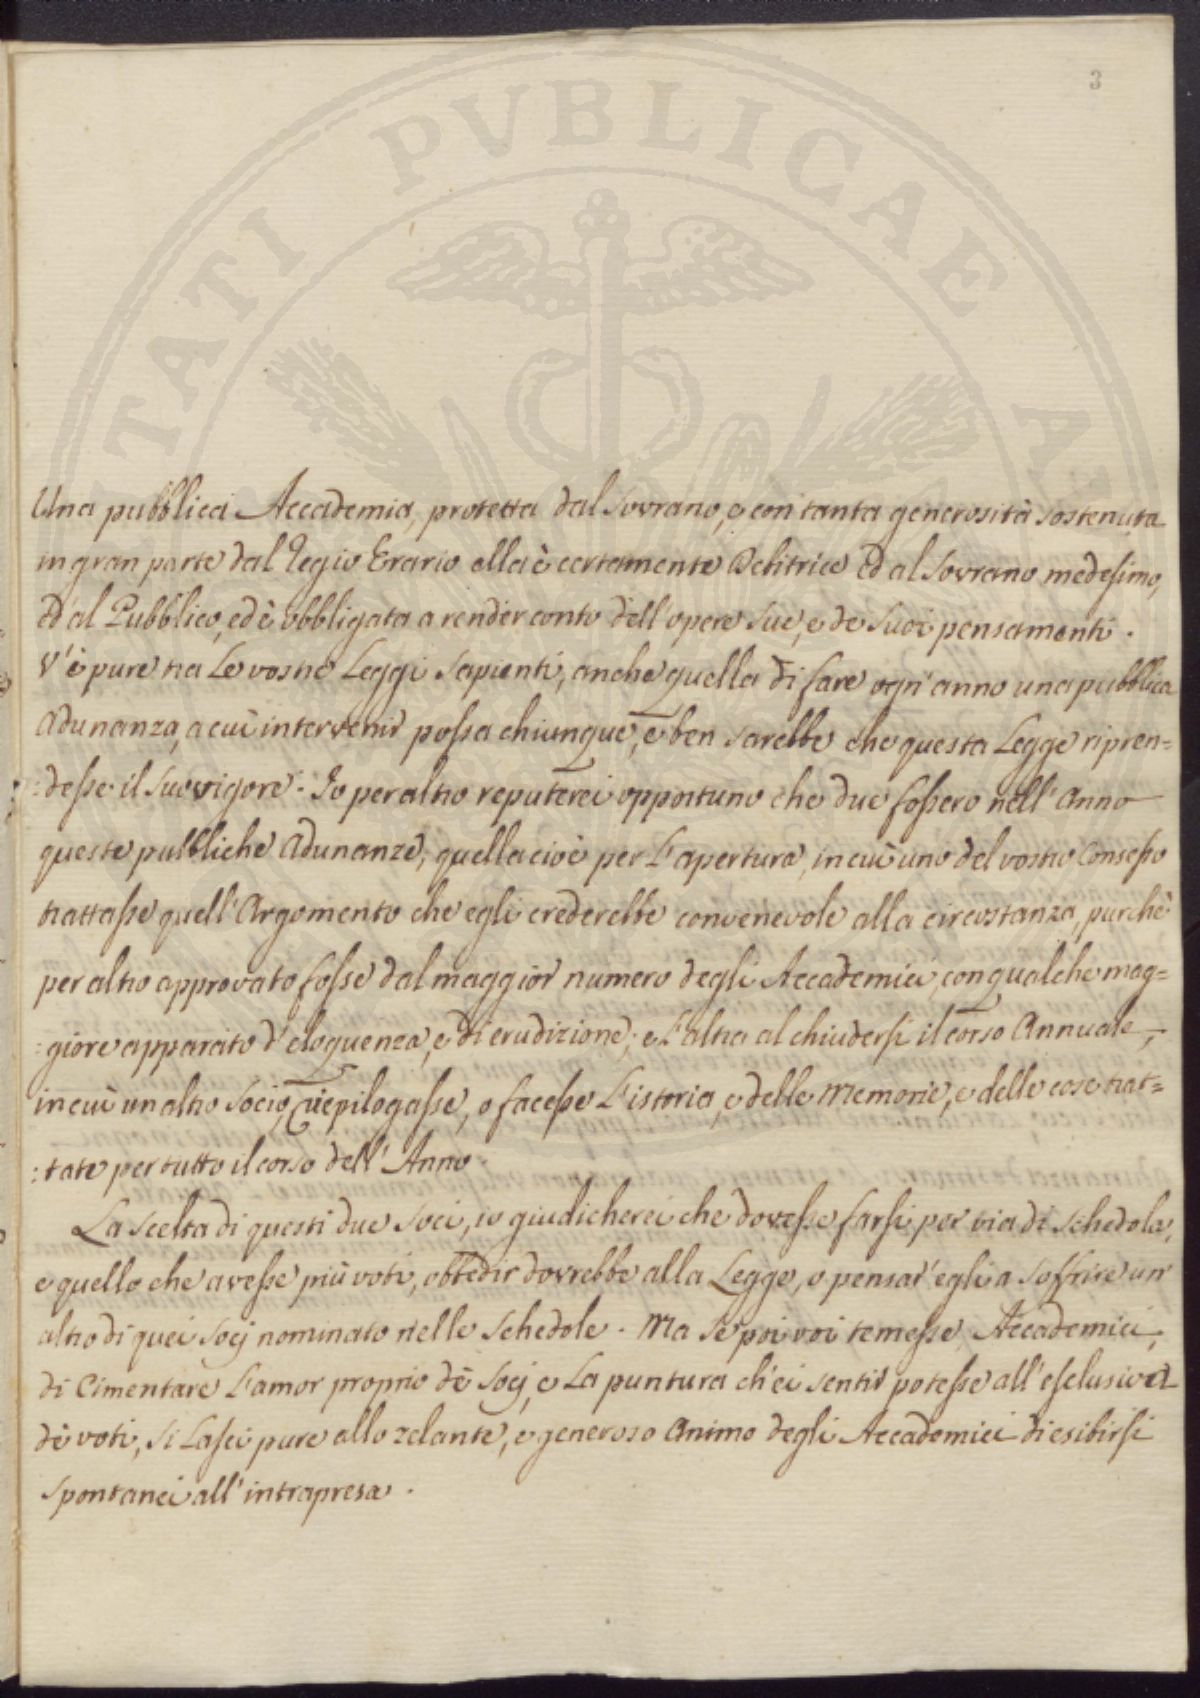 3
VTILITATI PVBLICAE
Una pubblica Accademia, protetta dal Sovrano, e con tanta generosità sostenuta
in gran parte dal Regio Erario ella è certamente Debitrice ed al Sovrano medesimo,
ed al Pubblico, ed è obbligata a render conto dell'opere sue, e de suoi pensamenti.
V'è pure tra le vostre Leggi sapienti, anche quella di fare ogn'anno una pubblica
Adunanza, a cui intervenir possa chiunque, e ben sarebbe che questa Legge ripren=
:desse il suo vigore. Io peraltro reputerei opportuno che due fossero nell'Anno
queste pubbliche Adunanze, quella cioè per l'apertura, in cui uno del vostro Consesso
trattasse quell'Argomento che egli crederebbe convenevole alla circostanza, purchè
per altro approvato fosse dal maggior numero degli Accademici, con qualche mag=
:giore apparato d'eloquenza, e di erudizione; e l'altra al chiudersi il corso Annuale,
in cui un altro Socio, riepilogasse, o facesse l'istoria, e delle Memorie, e delle cose trat=
:tate per tutto il corso dell'Anno.
La scelta di questi due Soci, io giudicherei che dovesse farsi per via di schedola,
e quello che avesse più voti, obbedir dovrebbe alla Legge, o pensar'egli a soffrire un'
altro di quei Socj nominato nelle schedole. Ma se poi voi temesse, Accademici,
di Cimentare l'amor proprio dè Socj, e la puntura ch'ei sentir potesse all'esclusiva
dè voti, si lasci pure allo zelante, e generoso Animo degli Accademici di esibirsi
spontanei all'intrapresa.